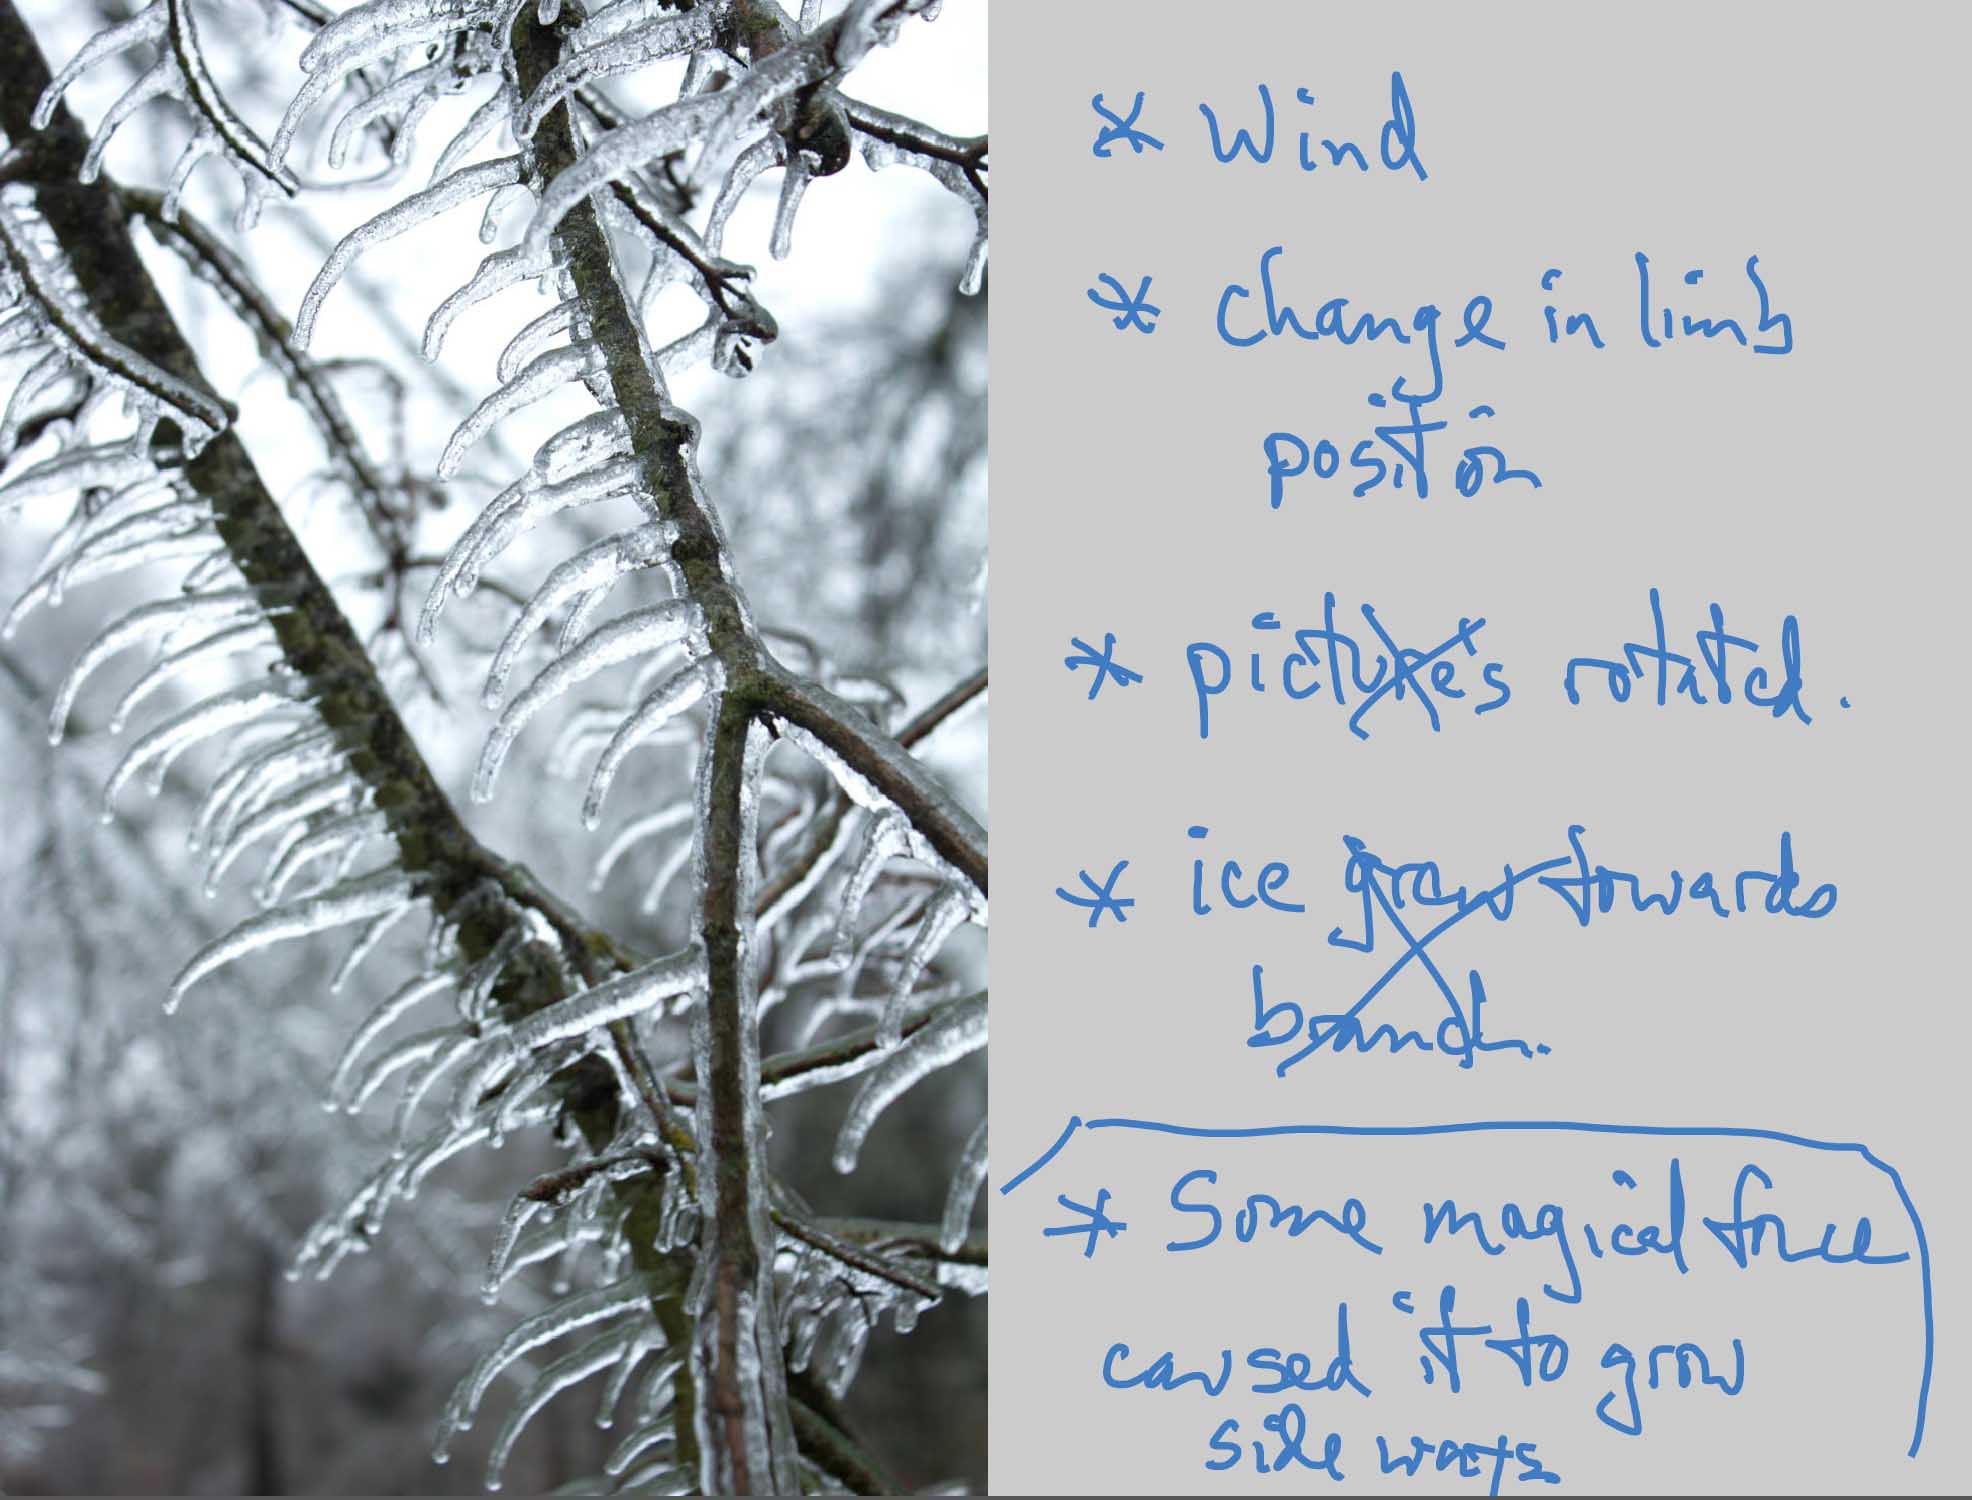 * Wind
* change in limb
position
* picture's rotated.
* ice grew towards
branch.
* Some magical force
caused it to grow
side ways